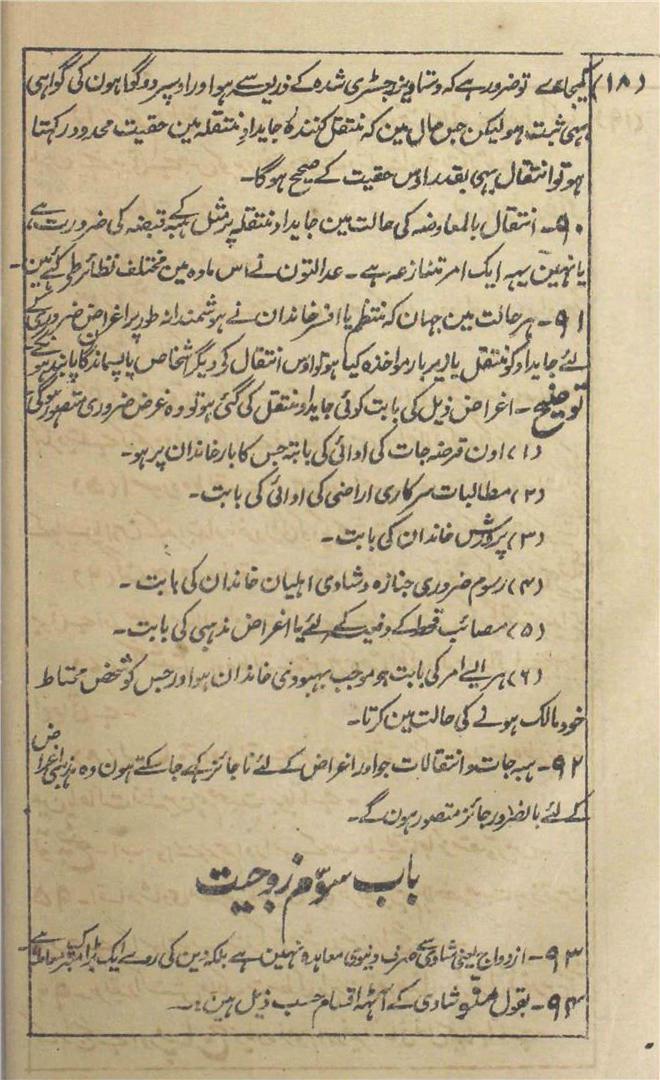 (۱۸)
کیجاے تو ضرور ہے کہ دستاویز رجسٹری شدہ کے ذریعے سے ہو اور اوسپر دو گواہون کی گواہی
بہی ثبت ہو لیکن جس حال مین کہ منتقل کنندہ کا جایداد منتقلہ مین حقیت محدود رکھتا
ہو تو انتقال بہی بقدر اوس حقیت کے صحیح ہوگا۔
۹۰۔ انتقال بالمعاوضہ کی حالت مین جایداد منتقلہ پر مثل ہبہ کے قبضہ کی ضرورت ہے،
یا نہین یہہ ایک امر متنازعہ ہے۔ عدالتون نے اس مادہ مین مختلف نظائر طے کئے ہین۔
۹۱۔ ہر حالت مین جہان کہ منتظم یا افسر خاندان نے ہوشمندانہ طور پر اغراض ضروری کے
لئے جایداد کو منتقل یا زیر بار مواخذہ کیا ہو تو اوس انتقال کی دیگر اشخاص یا پسماندگا پابند ہونگے
توضیح۔ اغراض ذیل کی بابت کوئی جایداد منتقل کی گئی ہو تو وہ غرض ضروری متصور ہوگی
(۱) اون قرضہ جات کی ادائی کی بابتہ جس کا بار خاندان پر ہو۔
(۲) مطالبات سرکاری اراضی کی ادائی کی بابت۔
(۳) پرورش خاندان کی بابت۔
(۴) رسوم ضروری جنازہ و شادی اہلیان خاندان کی بابت ۔
(۵) مصائب قحط کے دفعیہ کے لئے یا اغراض مذہبی کی بابت۔
(۶) ہر ایسے امر کی بابت جو موجب بہبودی خاندان ہو اور جس کو شخص محتاط
خود مالک ہونے کی حالت مین کرتا۔
۹۲۔ ہبہ جات و انتقالات جو اور اغراض کے لئے ناجائز کہے جاسکتے ہون وہ مذہبی اغراض
کے لئے بالضرور جائز متصور ہون گے۔
باب سوم زوجیت
۹۳۔ ازدواج یعنی شادی صرف دنیوی معاہدہ نہین ہے بلکہ دین کی رو سے ایک بڑا متبرک معاملہ ہے۔
۹۴۔ بقول منو شادی کے آٹہہ اقسام حسب ذیل ہین:۔